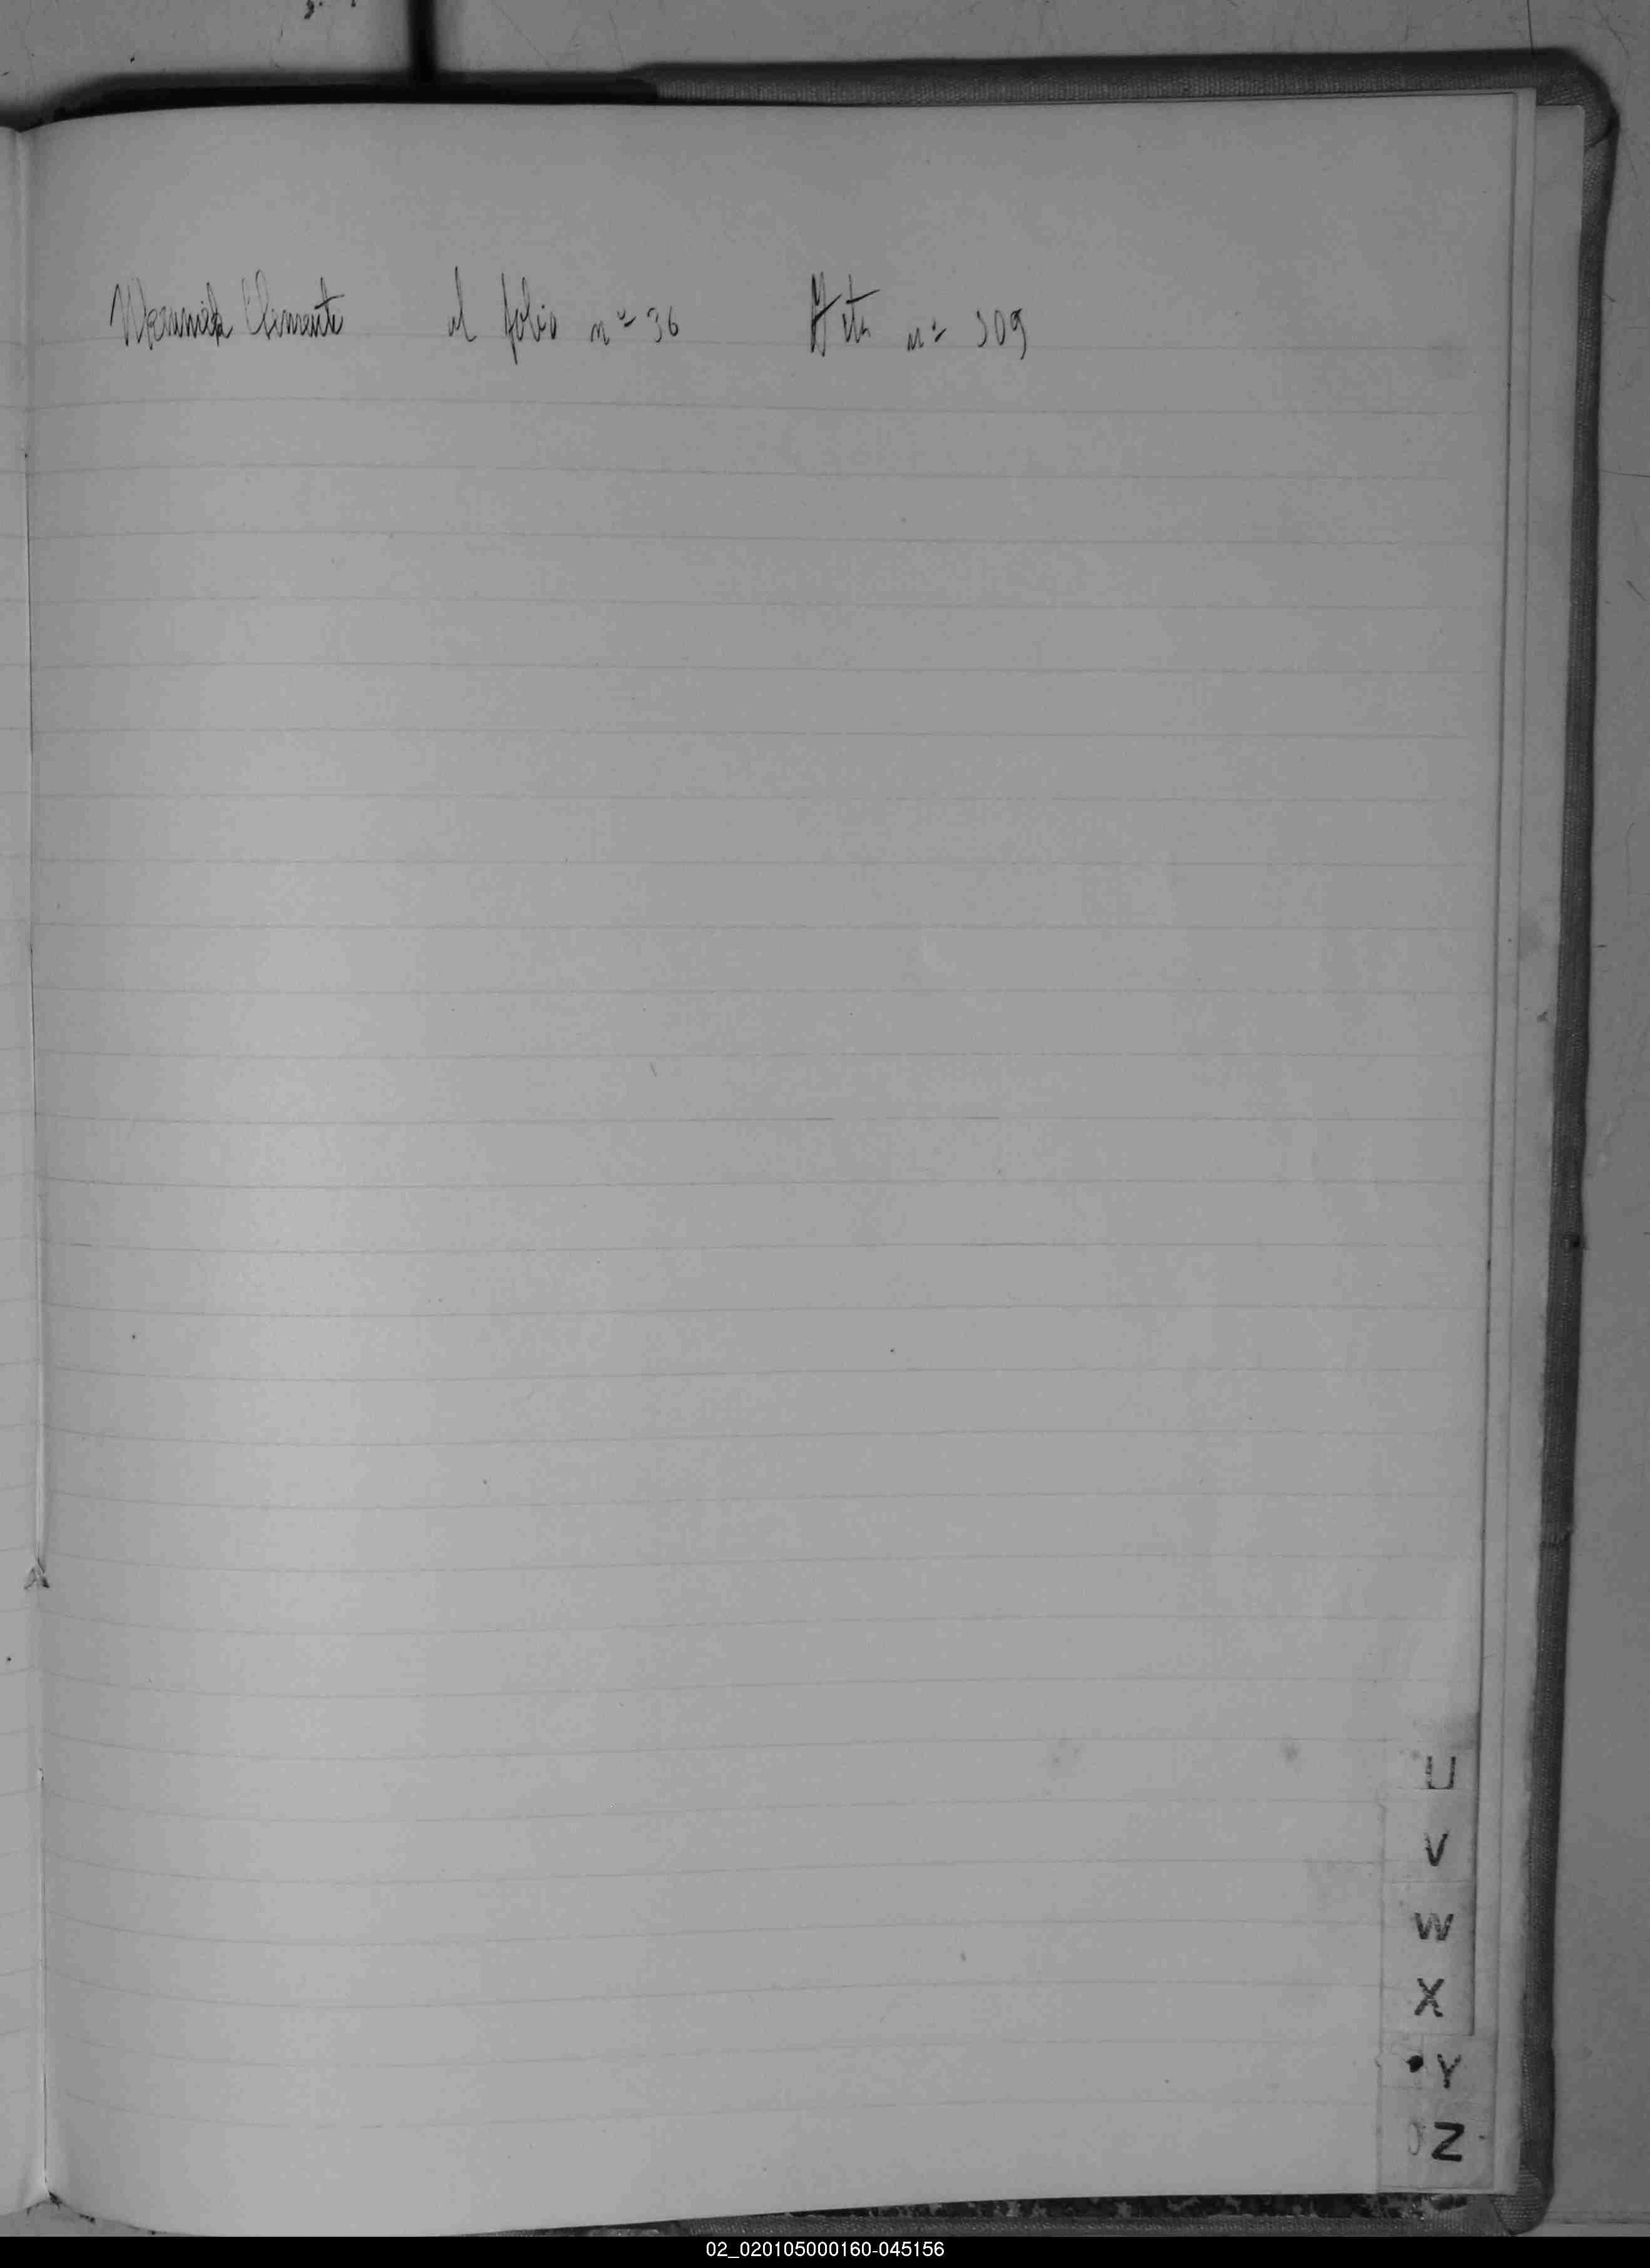 Clemente al folio nº 36 Acta nº 309
U
V
W
X
Y
Z
02_020105000160-045156